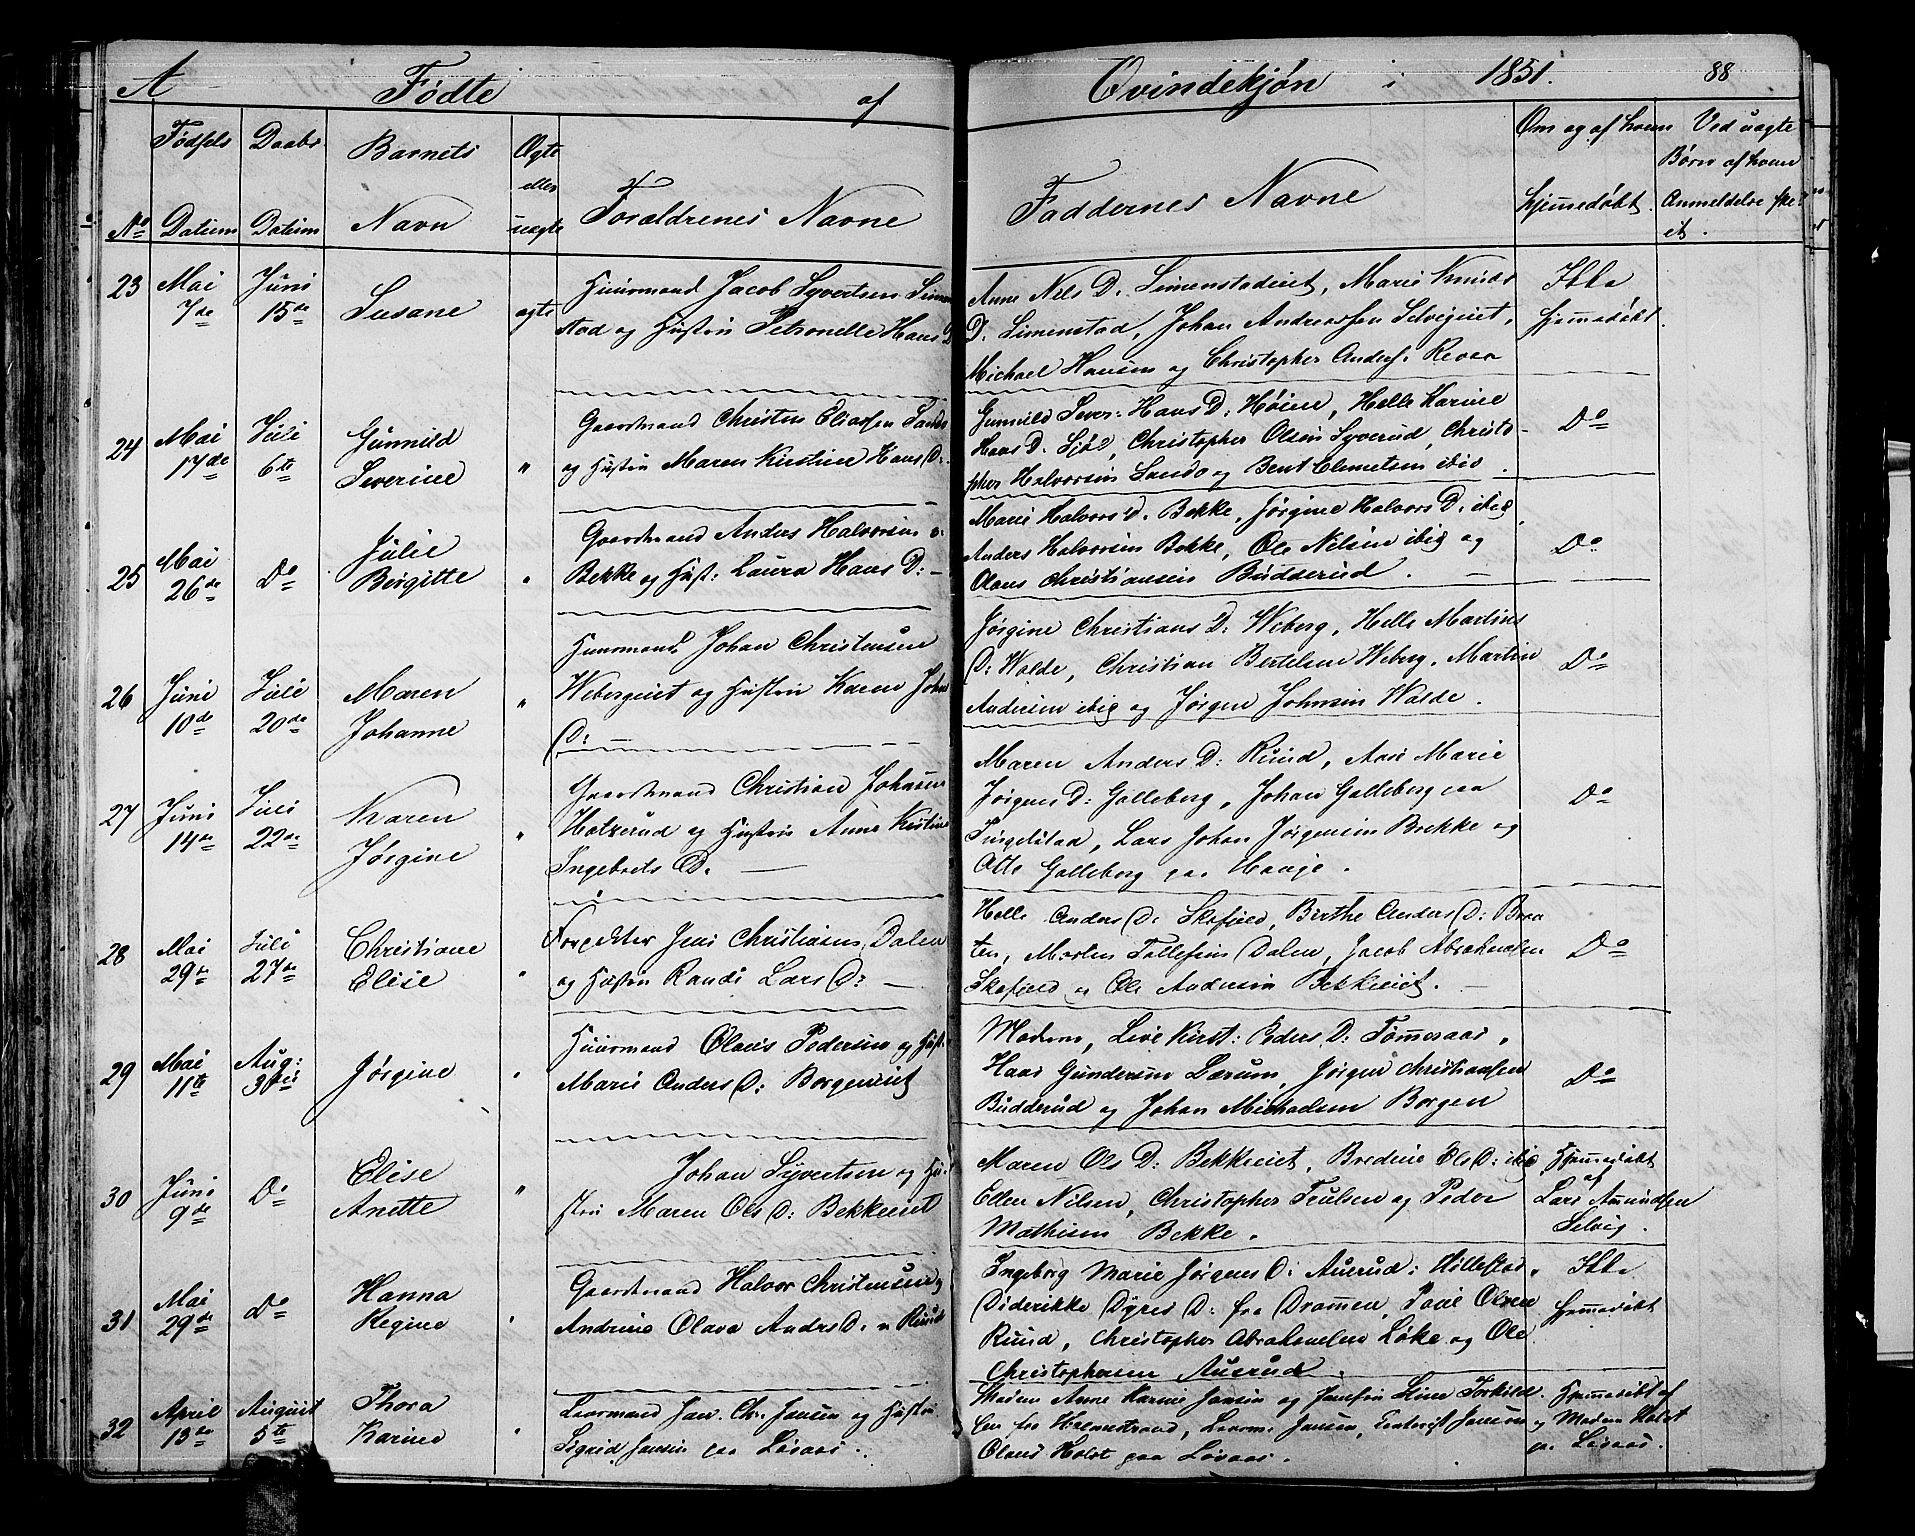 A Fødte af Qvindekjøn i 1851. 88
No
Fødsels Datum
Daabs Datum
Barnets Navn
Ægte eller uægte
Forældrenes Navne
Faddernes Navne
Om og af hvem hjemedøbt.
Ved uægte Børn af hvem Anmeldelse skeet.
23 Mai 7de Juni 15de Susane ægte
Huusmand Jacob Syvertsen Simen
stad og Hustru Petronelle Hans D
Anne Nils D. Simenstadeiet, Marie Knuds
D. Simenstad, Johan Andreassen Selvigeiet,
Michael Hansen og Christopher Anders. Revaa
Ikke
hjemedøbt.
24 Mai 17de Juli 6te Gunnild Severine "
Gaardmand Christen Eliassen Sando
og Hustru Maren Kirstine Hans D:
Gunnild Sever: Hans D. Høien, Helle Karine
Hans D. , Christopher Olsen Syverud, Christo-
pher Halvorsen Sando og Bent Clemetsen ibid.
Do
25 Mai 26de Do Julie Birgitte "
Gaardmand Anders Halvorsen
Bekke og Hust: Laura Hans D: —
Marie Halvors D. Bekke, Jørgine Halvors D: ibig
Anders Halvorsen Bekke, Ole Nilsen ibig og
Olaus Christiansen Budderud. —
Do
26 Juni 10de Juli 20de Maren Johanne "
Huusmand Johan Christensen
Webergeiet og Hustru Karen Johns
D: —
Jørgine Christians D: Weberg, Helle Martins
D: Walde, Christian Bertelsen Weberg, Martin
Andersen ibig og Jørgen Johnsen Walde.
Do
27 Juni 14de Juli 22de Karen Jørgine "
Gaardmand Christian Johnsen
Holtzerud og Hustru Anne Kirstine
Ingebrets D. —
Maren Anders D: Ruud, Anne Marie
Jørgens D: Galleberg, Johan Galleberg paa
Tingelstad, Lars Johan Jørgensen Brekke og
Otto Galleberg paa Haaje.
Do
28 Mai 29de Juli 27de Christiane Elise "
Jens Christiansen Dalen
og Hustru Randi Lars D: —
Helle Anders D: Skafjeld, Berthe Anders D: Braa
ten, Morten Tollefsen Dalen, Jacob Abrahamsen
Skafjeld og Ole Andersen Bekkeeiet. —
Do
29 Mai 11te Aug: 3die Jørgine "
Huusmand Olaus Pedersen og Hust:
Marie Anders D: Borgeneiet
Modern, Live Kirst: Peders D: Tømmeraas,
Haas Gundersen Lærum, Jørgen Christiansen
Budderud og Johan Michaelsen Borgen
Do
30 Juni 9de Do Elise Anette "
Johan Syvertsen og Hu-
stru Maren Ols D: Bekkeeiet
Maren Ols D: Bekkeeiet, Bredine Ols D: ibig
Ellen Nilsen, Christopher Poulsen og Peder
Mathisen Bekke.
Hjemedøbt
af
Lars Amundsen
Selvig.
31 Mai 29de Do Hanna Regine "
Gaardmand Halvor Christensen og
Andrine Olava Anders D. Ruud
Ingeborg Marie Jørgens D: Auerud i Hillestad,
Diderikke Dyres D: fra Dramen, Poul Olsen
Ruud, Christopher Abrahamsen Løke og Ole
Christophersen Auerud.
Ikke
hjemedøbt
32 April 13de August 5te Thora Karine "
Jan. Chr. Jansen og Hustru
Sigrid Jansen paa Løvaas.
Madam Anne Karine Jansen og Line Torkild-
sen fra Holmestrand, Jansen, Jansen
Olaus Holst paa Løvaas.
Hjemmedøbt af
Madam Holst
paa Løvaas.